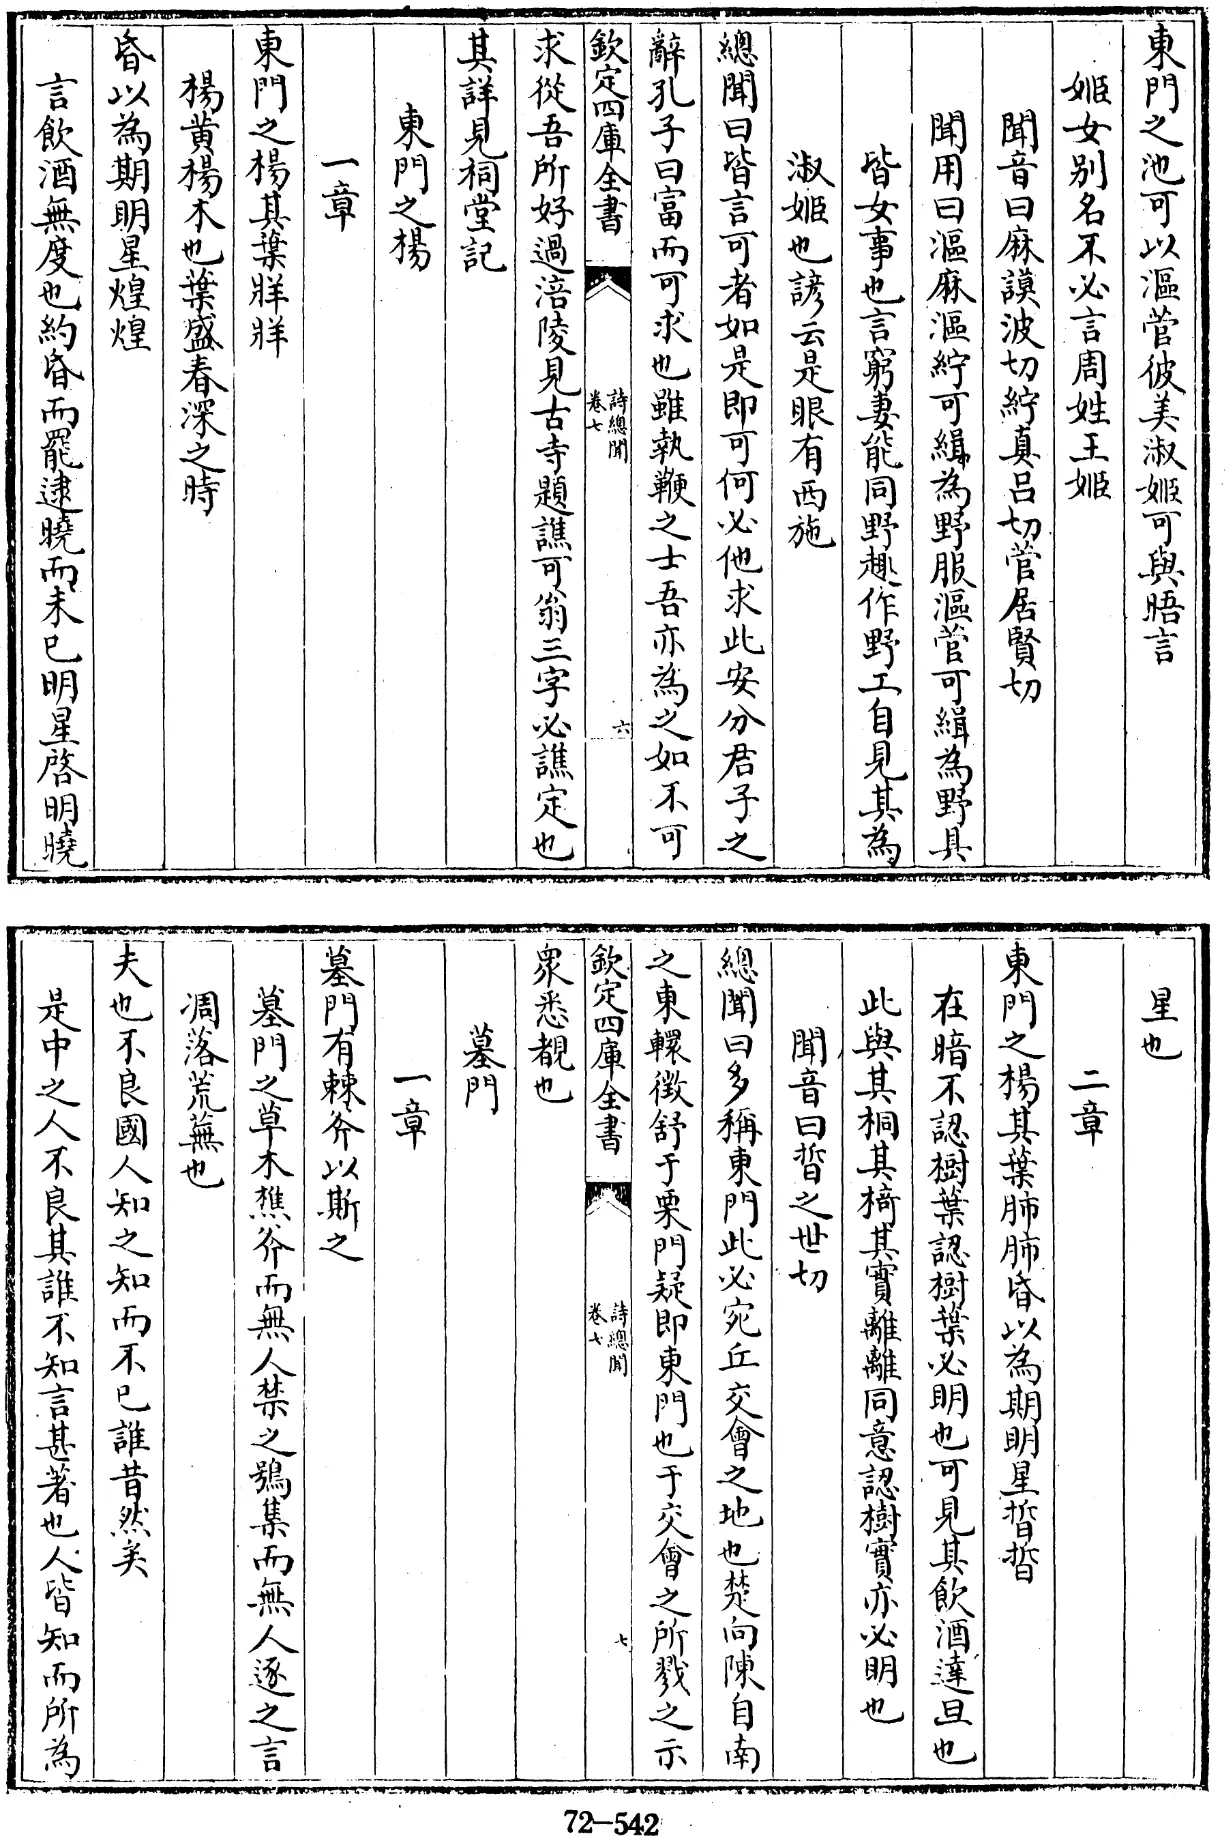 東門之池可以漚菅彼美淑姬可與晤言
姬女别名不必言周姓王姬
聞音曰麻謨波切紵真呂切菅居賢切
聞用曰漚麻漚紵可緝為野服漚菅可緝為野具
皆女事也言窮妻能同野趣作野工自見其為
淑姬也諺云是眼有西施
總聞曰皆言可者如是即可何必他求此安分君子之
辭孔子曰富而可求也雖執鞭之士吾亦為之如不可
欽定四庫全書
詩總聞
卷七
六
求從吾所好過涪陵見古寺題譙可翁三字必譙定也
其詳見祠堂記
東門之楊
一章
東門之楊其葉牂牂
楊黄楊木也葉盛春深之時
昏以為期明星煌煌
言飲酒無度也約昏而罷逮曉而未已明星啓明曉
星也
二章
東門之楊其葉肺肺昏以為期明星晢晢
在暗不認樹葉認樹葉必明也可見其飲酒達旦也
此與其桐其椅其實離離同意認樹實亦必明也
聞音曰晢之世切
總聞曰多稱東門此必宛丘交會之地也楚向陳自南
之東轘徴舒于栗門疑即東門也于交會之所戮之示
欽定四庫全書
詩總聞
卷七
七
衆悉覩也
墓門
一章
墓門有棘斧以斯之
墓門之草木樵斧而無人禁之鴞集而無人逐之言
凋落荒蕪也
夫也不良國人知之知而不已誰昔然矣
是中之人不良其誰不知言甚著也人皆知而所為
72-542